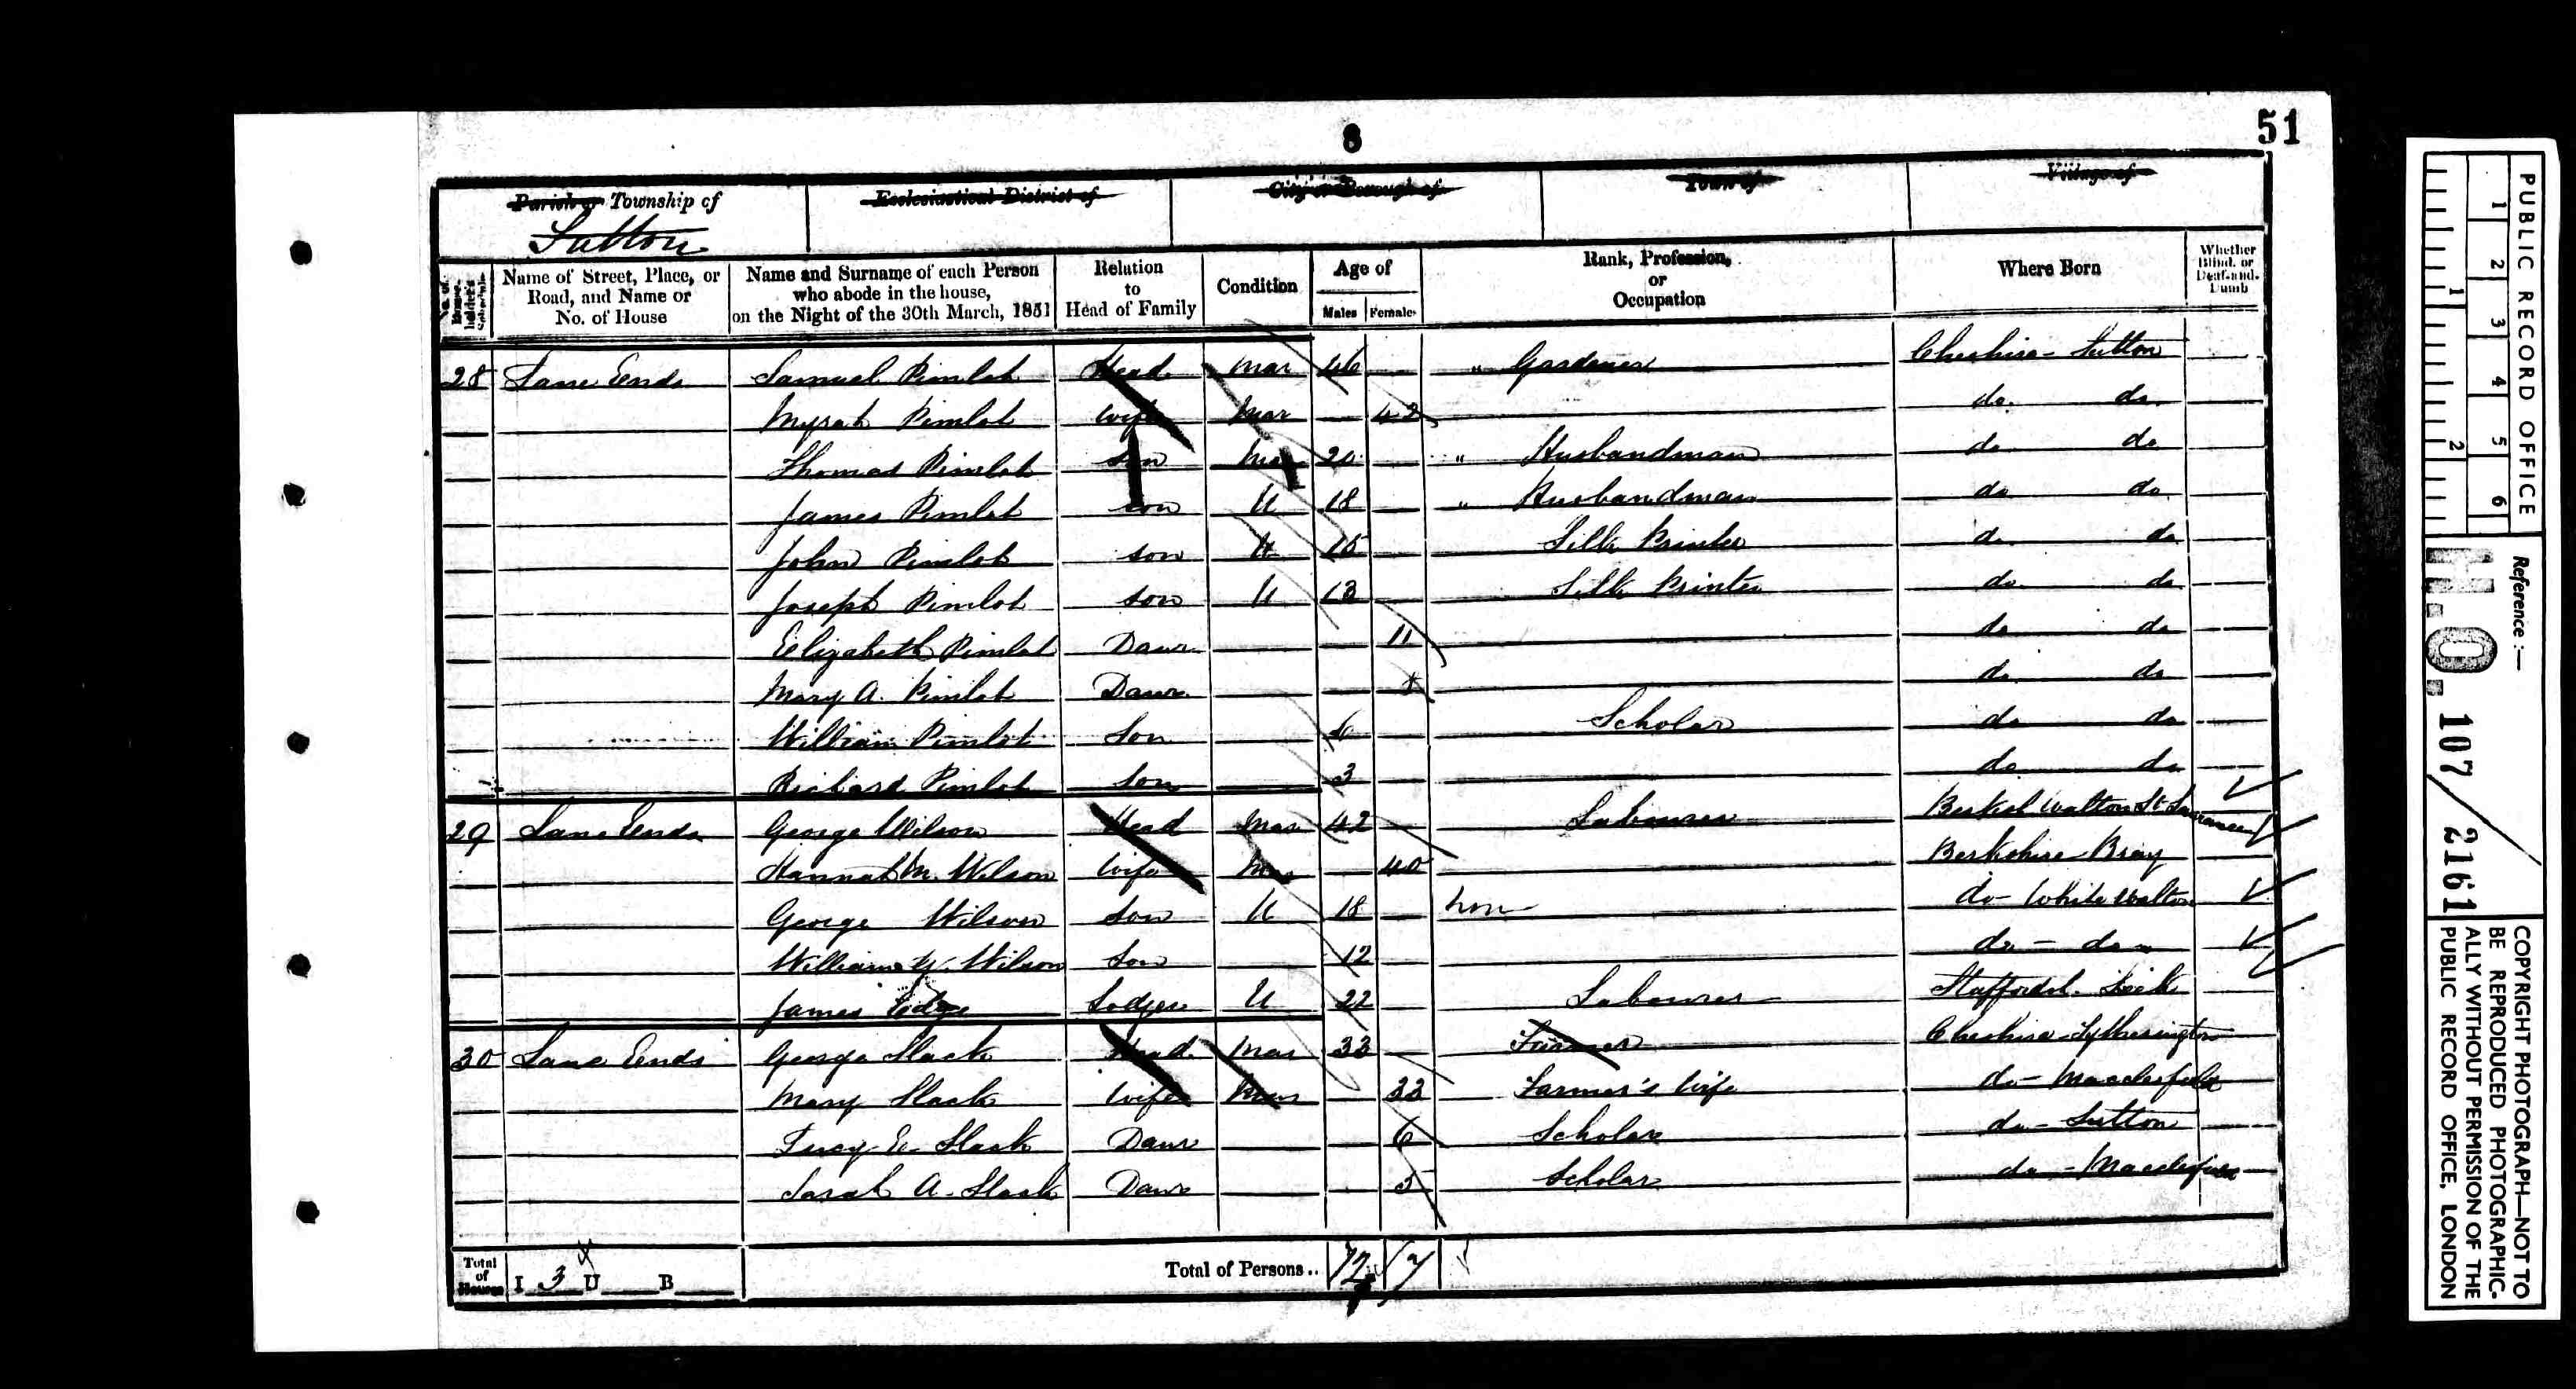 8
51
Parish or Township of
Sutton
Ecclesiastical District of
City or Borough of
Town of
Village of
No. of House-holder's Schedule
Name of Street, Place, or Road, and Name or No. of House
Name and Surname of each Person who abode in the house, on the Night of the 30th March, 1851
Relation to Head of Family
Condition
Age of
Males Females
Rank, Profession, or Occupation
Where Born
Whether Blind, or Deaf-and-Dumb
28 Lane Ends Samuel Pimlot Head Mar 46 " Gardener Cheshire - Sutton
Myrah Pimlot Wife Mar 42 do. do.
Thomas Pimlot son Mar 20 " Husbandman do do
James Pimlot son U 18 " Husbandman do do
John Pimlot son U 15 Silk Printer do do
Joseph Pimlot son U 13 Silk Printer do do
Elizabeth Pimlot Daur 11 do do
Mary A. Pimlot Daur do do
William Pimlot Son 6 Scholar do do
Richard Pimlot Son 3 do do
29 Lane Ends George Wilson Head Mar 42 Labourer Walton St
Hannah M. Wilson Wife Mar 40 Berkshire Bray
George Wilson Son U 18 do - White Walton
William Wilson Son 12 do - do
James Edge Lodger U 22 Labourer Staffordsh. Leek
30 Lane Ends George Slack Head Mar 33 Farmer Cheshire - Tytherington
Mary Slack Wife Mar 33 Farmer's Wife do - Macclesfield
Lucy E. Slack Daur 6 Scholar do - Sutton
Sarah A. Slack Daur 5 Scholar do - Macclesfield
Total of Houses I 3 U B
Total of Persons.. 12 7
PUBLIC RECORD OFFICE
1 2 3 4 5 6
1 2
Reference :-
H.O. 107 / 2161
COPYRIGHT PHOTOGRAPH—NOT TO BE REPRODUCED PHOTOGRAPHIC-ALLY WITHOUT PERMISSION OF THE PUBLIC RECORD OFFICE, LONDON